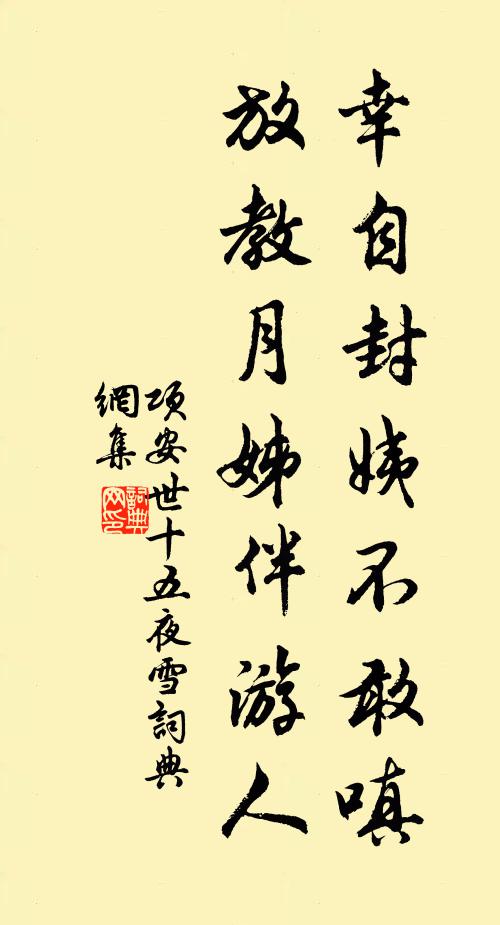 幸自封姨不敢嗔
放教月姊伴游人
项安世十五夜雪詞典
網集
詞典
网印